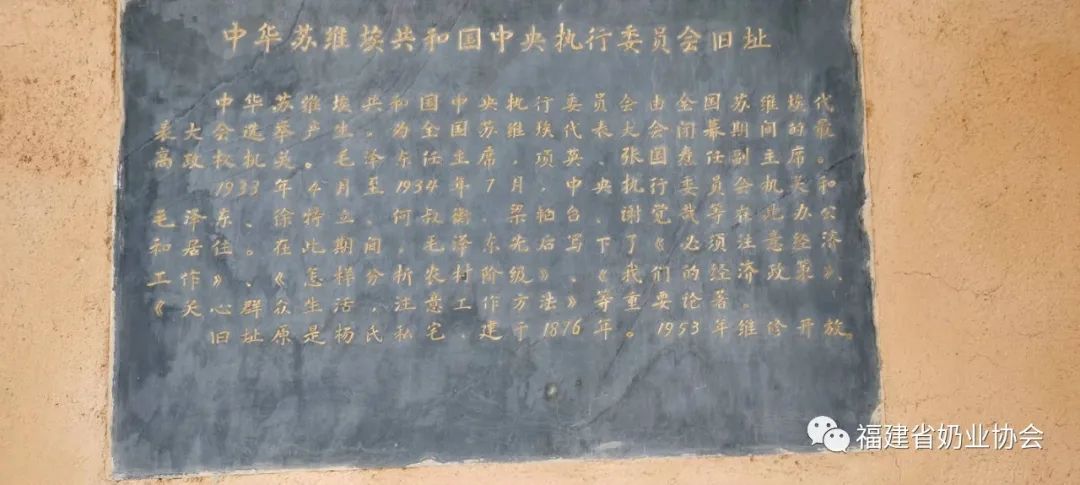 中华苏维埃共和国中央执行委员会旧址
中华苏维埃共和国中央执行委员会由全国苏维埃代
表大会选举产生。为全国苏维埃代表大会闭幕期间的最
高政权机关。毛泽东任主席，项英、张国焘任副主席。
1933年4月至1934年7月，中央执行委员会机关和
毛泽东、徐特立、何叔衡、梁柏台、谢觉哉等在此办公
和居住。在此期间，毛泽东先后写下了《必须注意经济
工作》、《怎样分析农村阶级》、《我们的经济政策》、
《关心群众生活，注意工作方法》等重要论著。
旧址原是杨氏私宅，建于1876年。1953年维修开放。
福建省奶业协会